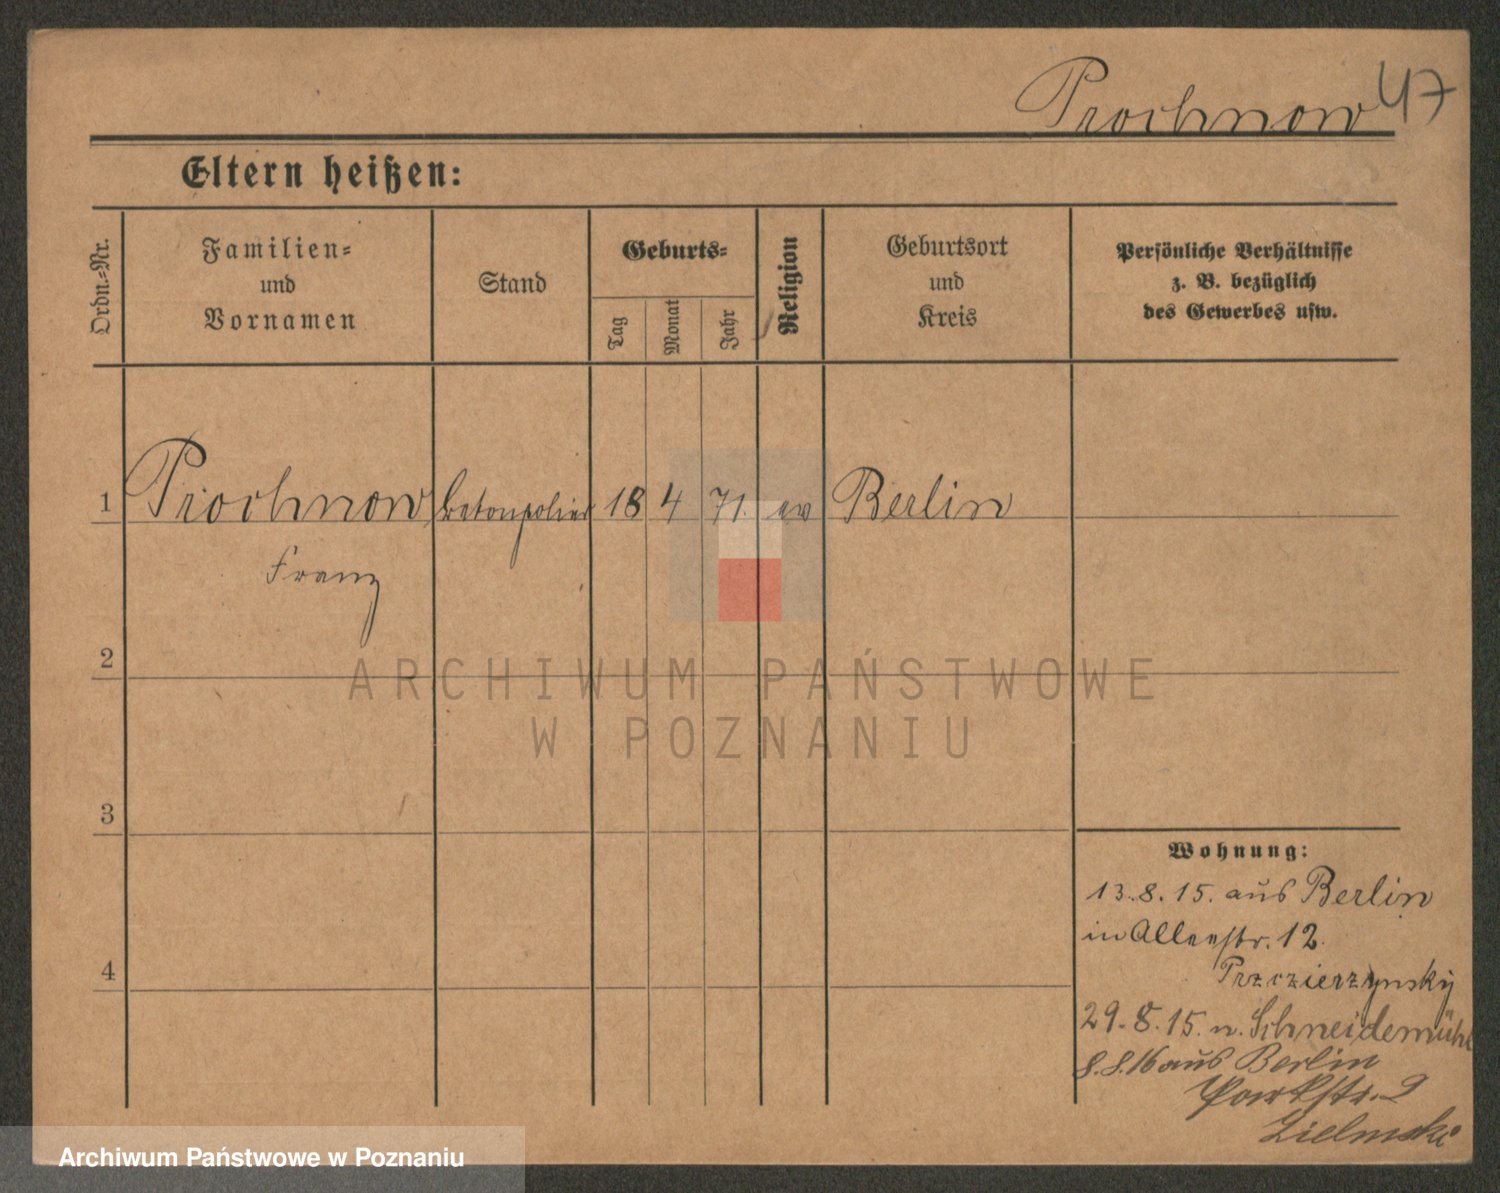 Prochnow 47
Eltern heißen:
Ordn.-Nr.
Familien-
und
Vornamen
Stand
Geburts-
Tag
Monat
Jahr
Religion
Geburtsort
und
Kreis
Persönliche Verhältnisse
z. B. bezüglich
des Gewerbes usw.
1 Prochnow Betonpolier 18 4 71. ev Berlin
Franz
2
3
4
Wohnung:
13.8.15. aus Berlin
in Alleestr. 12.
29.8.15. n. Schneidemühl
8.8.16 aus Berlin
Parkstr. 2
ARCHIWUM PAŃSTWOWE
W POZNANIU
Archiwum Państwowe w Poznaniu